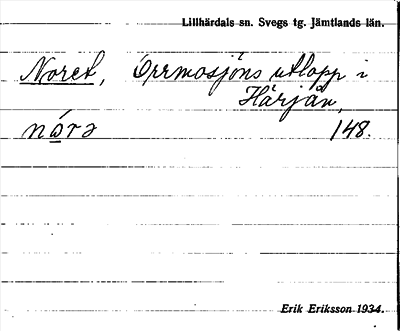 Lillhärdals sn. Svegs tg. Jämtlands län.
Noret, Örrmosjöns utlopp i
Härjån,
nórə 148.
Erik Eriksson 1934.